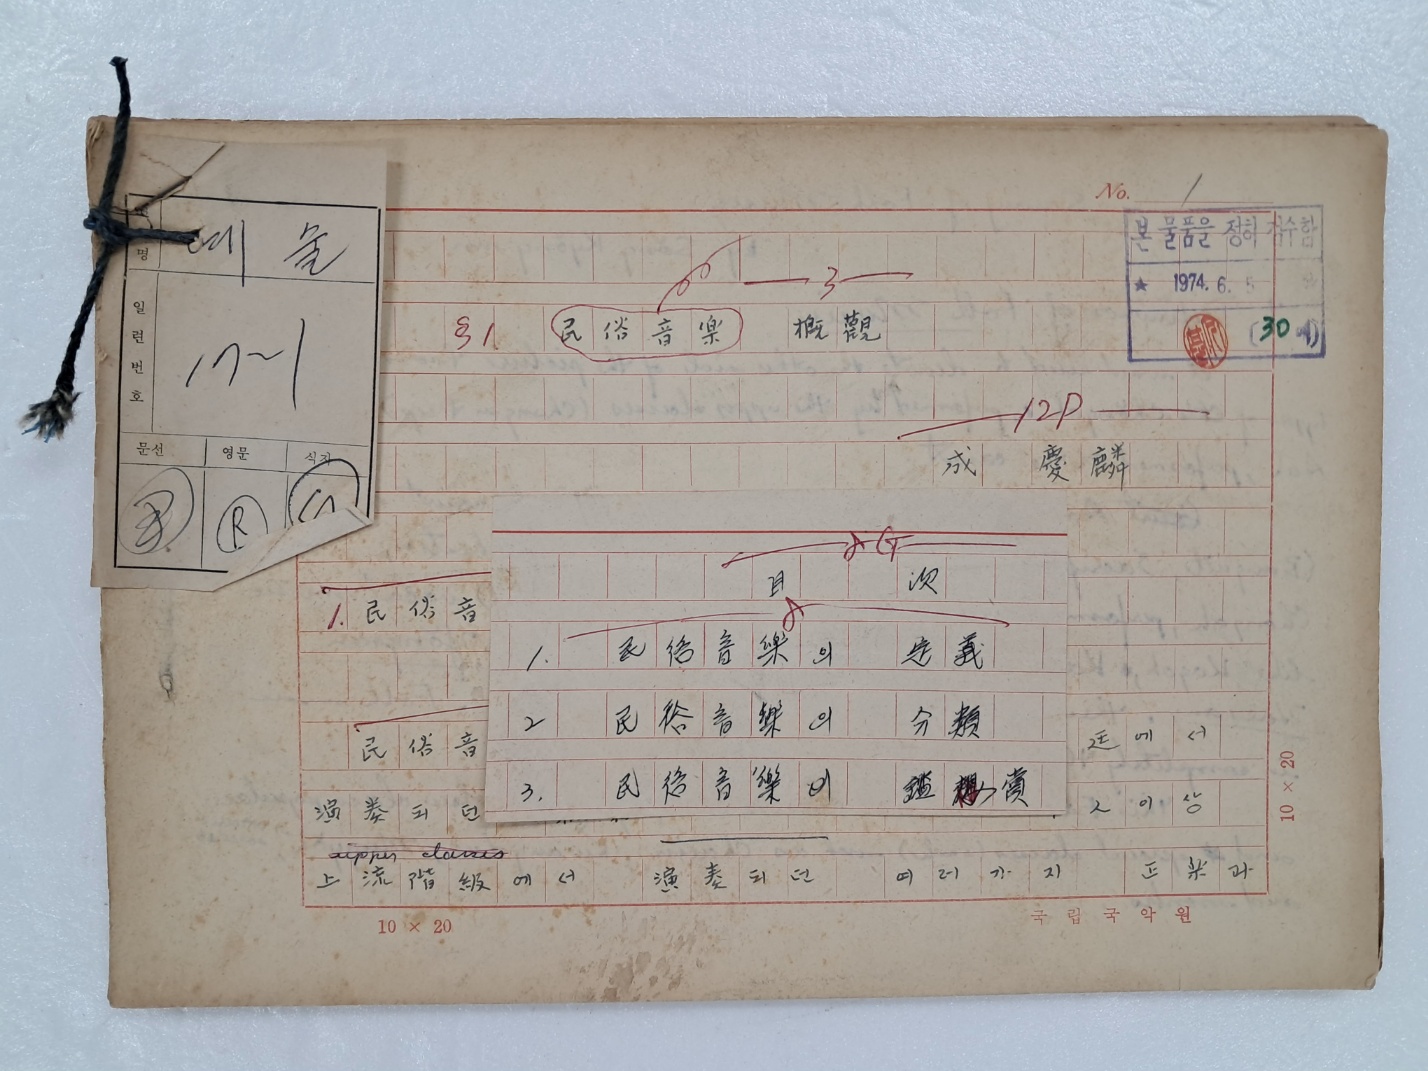 No. 1
본 물품을 정히 검수함
★ 1974. 6. 5
(30 매)
명 예술
일련번호 17~1
문선 영문 식자
R
3
§1. 民俗音楽 概觀
12P
成慶麟
8G
目次
8
1. 民俗音樂의 定義
2 民俗音樂의 分類
3. 民俗音樂의 鑑賞
1. 民俗音
民俗音 廷에서
演奏되던 이상
upper classes
上流階級에서 演奏되던 여러가지 正楽과
10 × 20
국립국악원
10 × 20